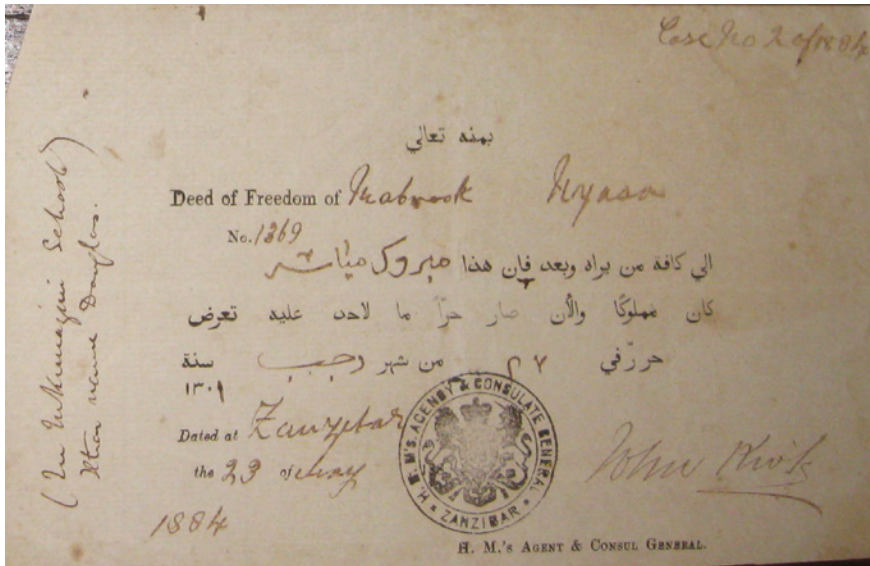 Case No 2 of 1884
بمنه تعالي
Deed of Freedom of Mabrook Nyasa
No. 1369
الي كافة من يراه وبعد فإن هذا مبروك مياسر
كان مملوكًا والأن صار حرّاً ما لاحد عليه تعرض
حرّر في ٢٧ من شهر رجب سنة ١٣٠١
Dated at Zanzibar
the 23 of May
1884
H. B. M'S. AGENCY & CONSULATE GENERAL
* ZANZIBAR *
John Kirk
H. M.'s Agent & Consul General.
(In Mkunazini School)
Xtian name Douglas.